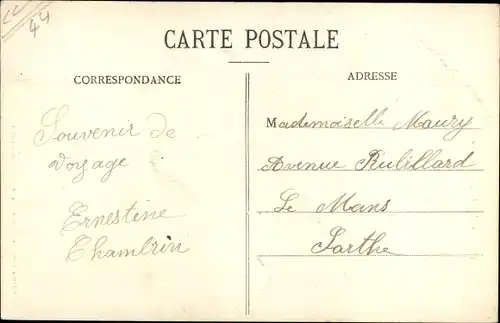 44
CARTE POSTALE
CORRESPONDANCE
ADRESSE
Souvenir de
voyage
Ernestine
Chambrin
Mademoiselle Maury
Avenue Rubillard
Le Mans
Sarthe